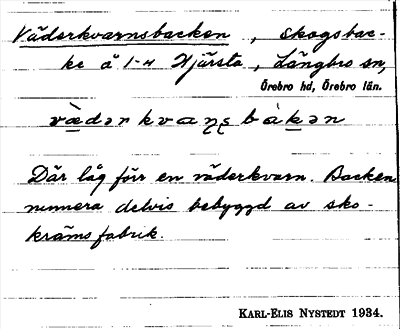 Väderkvarnsbacken, skogsbac-
ke å 1-4 Hjärsta, Längbro sn,
Örebro hd, Örebro län.
vä̀dərkvaɳʂbàkən
Där låg förr en väderkvarn. Backen
numera delvis bebyggd av sko-
krämsfabrik.
KARL-ELIS NYSTEDT 1934.